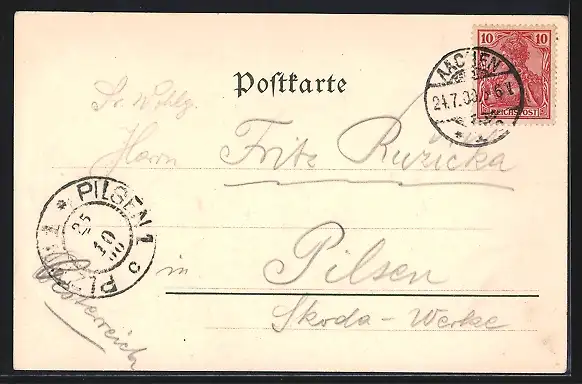 Postkarte
10 10
REICHSPOST
AACHEN
24.7.00
Sr. Wohlg.
Herrn
Fritz Ruzicka
in Pilsen
Skoda-Werke
Oesterreich
* PILSEN 1 *
25
10
00